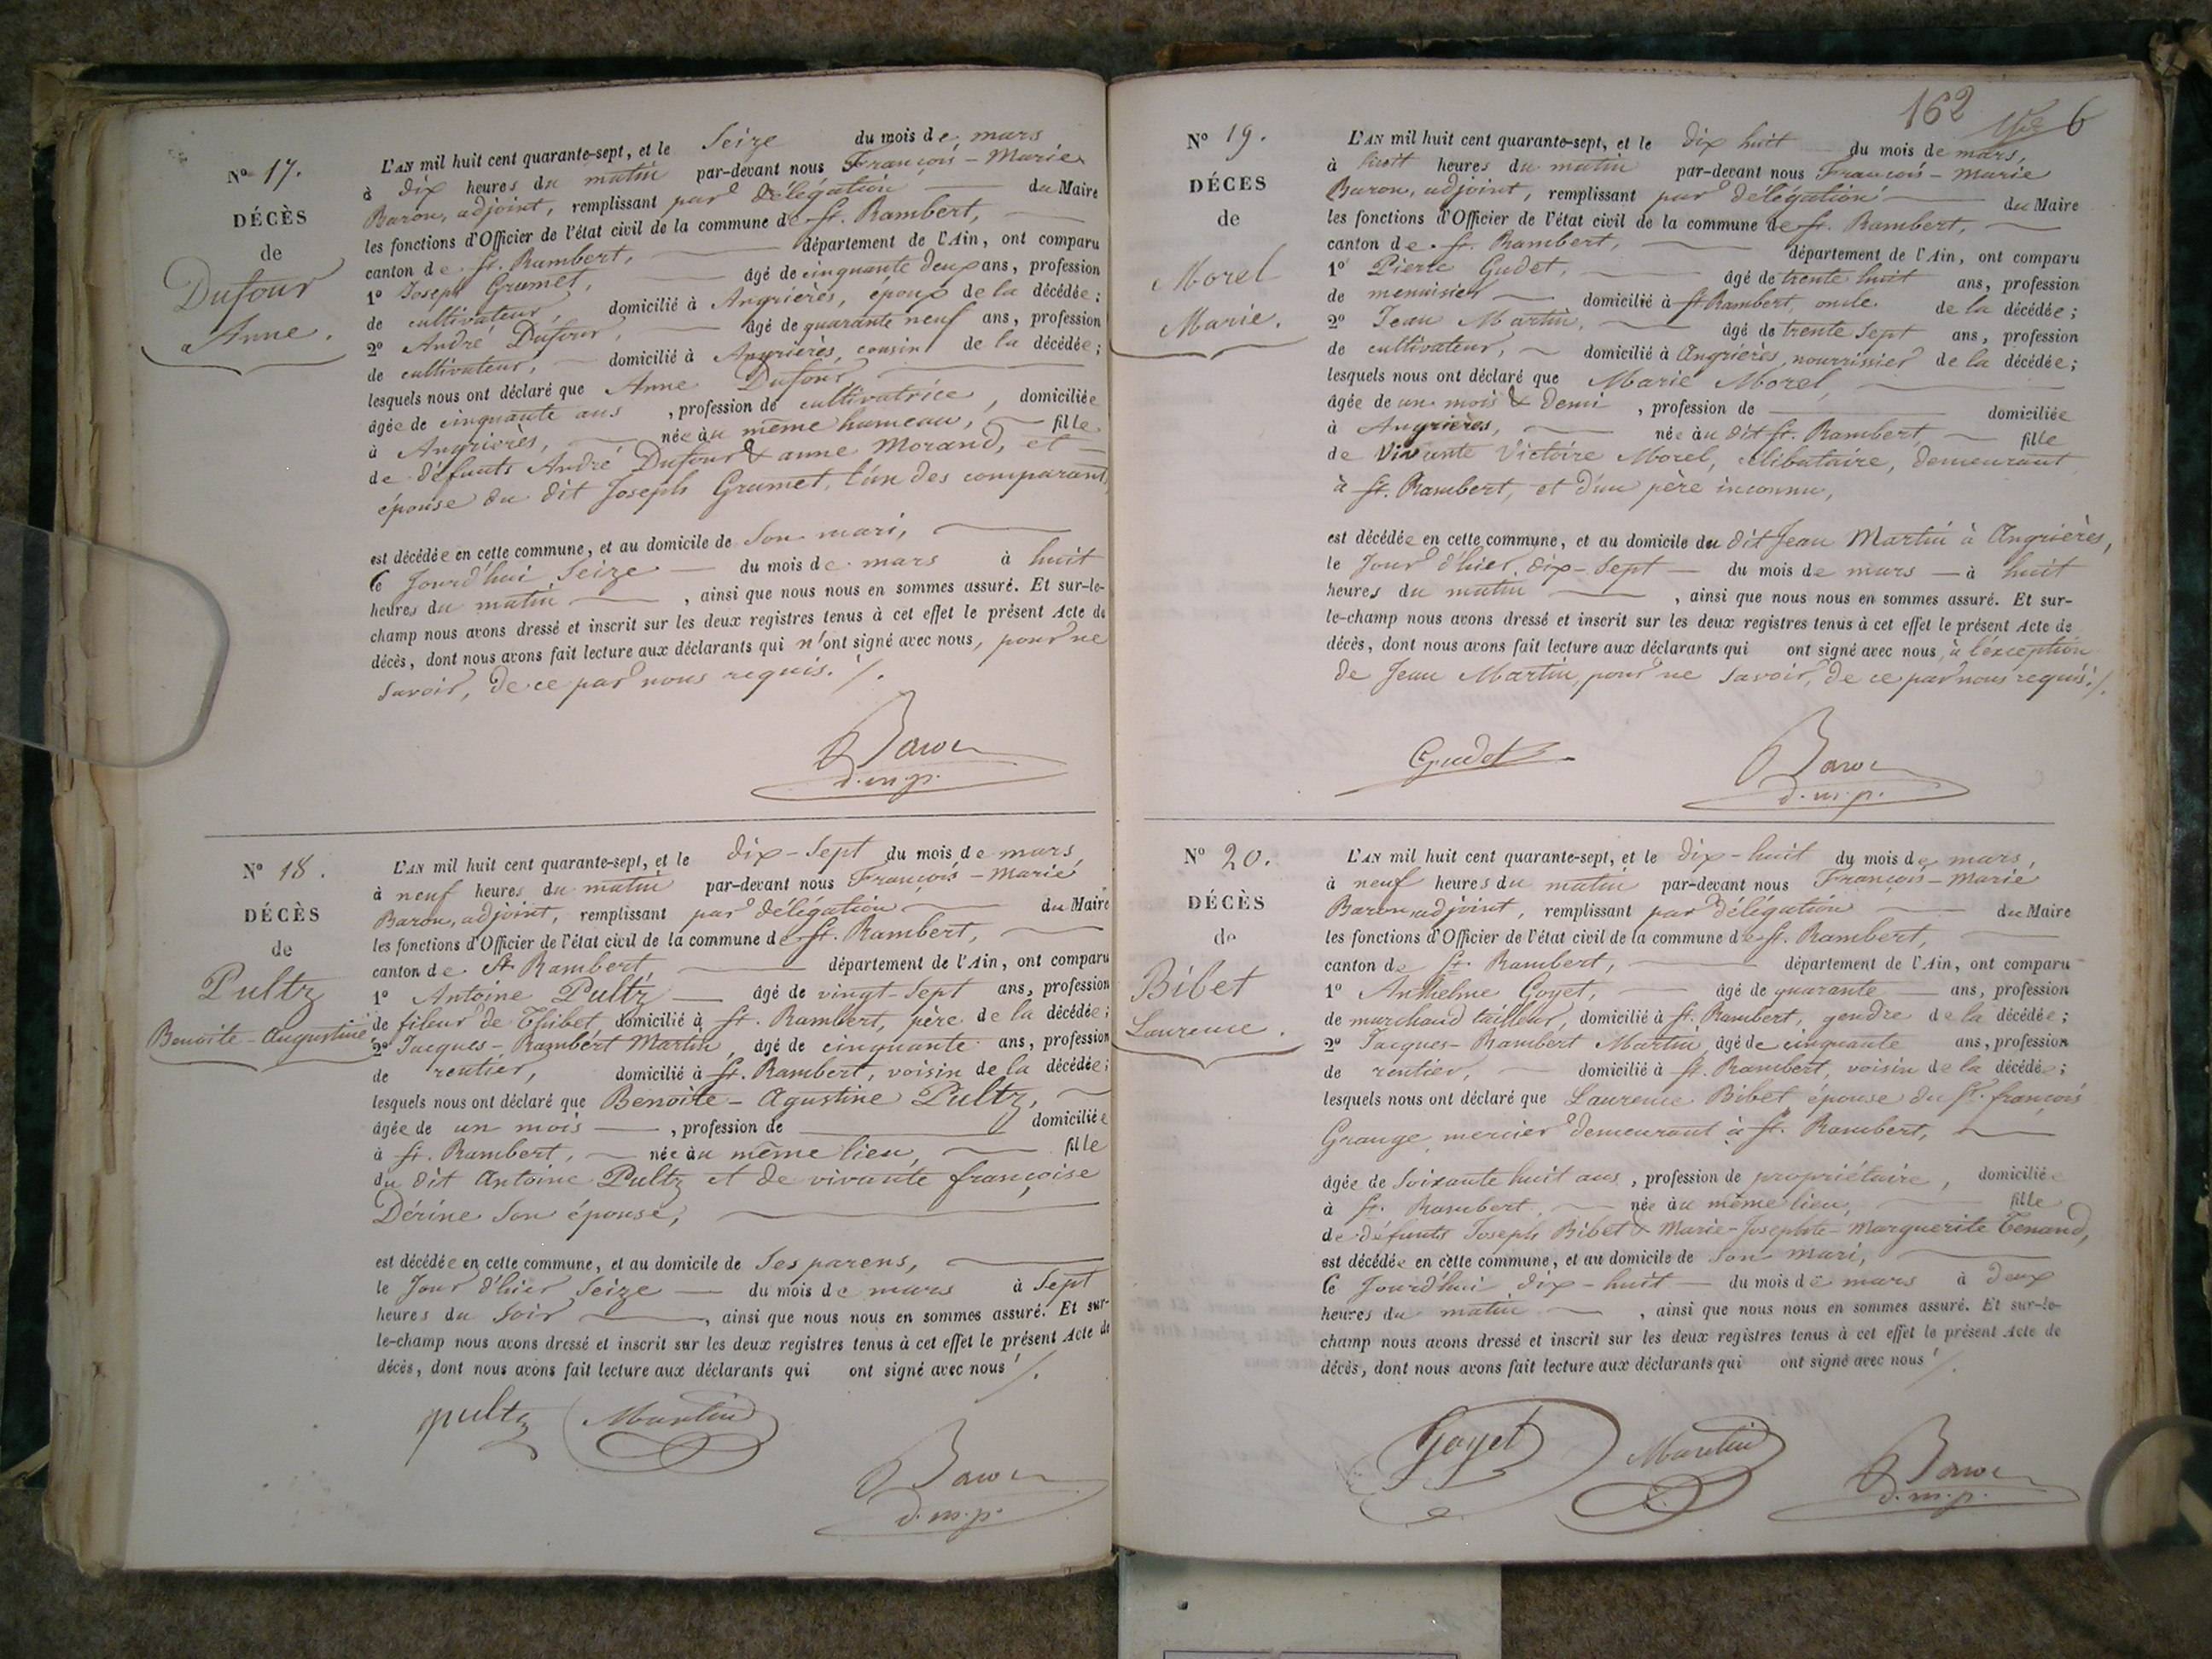 Nº 17.
DÉCÈS
de
Dufour
Anne.
L'AN mil huit cent quarante-sept, et le Seize du mois de mars
à dix heures du matin par-devant nous François-Marie
Baron, adjoint, remplissant par délégation du Maire
les fonctions d'Officier de l'état civil de la commune de St. Rambert,
canton de St. Rambert, département de l'Ain, ont comparu
1º Joseph Grumet, âgé de cinquante deux ans, profession
de cultivateur, domicilié à Angrières, époux de la décédée;
2º André Dufour, âgé de quarante neuf ans, profession
de cultivateur, domicilié à Angrières, cousin de la décédée;
lesquels nous ont déclaré que Anne Dufour
âgée de cinquante ans, profession de cultivatrice, domiciliée
à Angrières, née au même hameau, fille
de défunts André Dufour & anne Morand, et
épouse du dit Joseph Grumet, l'un des comparant,
est décédée en cette commune, et au domicile de son mari,
Ce Jourd'hui Seize du mois de mars à huit
heures du matin, ainsi que nous nous en sommes assuré. Et sur-le-
champ nous avons dressé et inscrit sur les deux registres tenus à cet effet le présent Acte de
décès, dont nous avons fait lecture aux déclarants qui n'ont signé avec nous, pour ne
savoir, de ce par nous requis./.
Baron
d.m.p.
Nº 18.
DÉCÈS
de
Pultz
Benoite-Augustine
L'AN mil huit cent quarante-sept, et le dix-sept du mois de mars,
à neuf heures du matin par-devant nous François-Marie
Baron, adjoint, remplissant par délégation du Maire
les fonctions d'Officier de l'état civil de la commune de St. Rambert,
canton de St. Rambert, département de l'Ain, ont comparu
1º Antoine Pultz âgé de vingt-sept ans, profession
de fileur de Thibet, domicilié à St. Rambert, père de la décédée;
2º Jacques-Rambert Martin, âgé de cinquante ans, profession
de rentier, domicilié à St. Rambert, voisin de la décédée;
lesquels nous ont déclaré que Benoite-Agustine Pultz,
âgée de un mois, profession de domiciliée
à St. Rambert, née au même lieu, fille
du dit Antoine Pultz et de vivante françoise
Dérine son épouse,
est décédée en cette commune, et au domicile de ses parens,
le Jour d'hier Seize du mois de mars à Sept
heures du Soir, ainsi que nous nous en sommes assuré. Et sur-
le-champ nous avons dressé et inscrit sur les deux registres tenus à cet effet le présent Acte de
décès, dont nous avons fait lecture aux déclarants qui ont signé avec nous/.
pultz Martin
Baron
d.m.p.
162
6
Nº 19.
DÉCES
de
Morel
Marie.
L'AN mil huit cent quarante-sept, et le dix huit du mois de mars,
à huit heures du matin par-devant nous François-Marie
Baron, adjoint, remplissant par délégation du Maire
les fonctions d'Officier de l'état civil de la commune de St. Rambert,
canton de St. Rambert, département de l'Ain, ont comparu
1º Pierre Gudet, âgé de trente huit ans, profession
de menuisier domicilié à St Rambert, oncle de la décédée;
2º Jean Martin, âgé de trente sept ans, profession
de cultivateur, domicilié à Angrières, nourrissier de la décédée;
lesquels nous ont déclaré que Marie Morel,
âgée de un mois & demi, profession de domiciliée
à Angrières, née au dit St. Rambert fille
de Vivante Victoire Morel, célibataire, demeurant
à St. Rambert, et d'un père inconnu,
est décédée en cette commune, et au domicile du dit Jean Martin à Angrières,
le Jour d'hier, dix-sept du mois de mars à huit
heures du matin, ainsi que nous nous en sommes assuré. Et sur-
le-champ nous avons dressé et inscrit sur les deux registres tenus à cet effet le présent Acte de
décès, dont nous avons fait lecture aux déclarants qui ont signé avec nous, à l'éxception
de Jean Martin, pour ne savoir, de ce par nous requis./.
Gudet Baron
d.m.p.
Nº 20.
DÉCÈS
de
Bibet
Laurence.
L'AN mil huit cent quarante-sept, et le dix-huit du mois de mars,
à neuf heures du matin par-devant nous François-Marie
Baron, adjoint, remplissant par délégation du Maire
les fonctions d'Officier de l'état civil de la commune de St. Rambert,
canton de St. Rambert, département de l'Ain, ont comparu
1º Anthelme Goyet, âgé de quarante ans, profession
de marchand tailleur, domicilié à St. Rambert, gendre de la décédée;
2º Jacques-Rambert Martin, âgé de cinquante ans, profession
de rentier, domicilié à St. Rambert, voisin de la décédée;
lesquels nous ont déclaré que Laurence Bibet épouse du Sr. françois
Grange, mercier demeurant à St. Rambert,
âgée de Soixante huit ans, profession de propriétaire, domiciliée
à St. Rambert, née au même lieu, fille
de défunts Joseph Bibet & Marie-Josephte-Marguerite Tenand,
est décédée en cette commune, et au domicile de son mari,
Ce Jourd'hui dix-huit du mois de mars à deux
heures du matin, ainsi que nous nous en sommes assuré. Et sur-le-
champ nous avons dressé et inscrit sur les deux registres tenus à cet effet le présent Acte de
décès, dont nous avons fait lecture aux déclarants qui ont signé avec nous/.
Goyet Martin Baron
d.m.p.